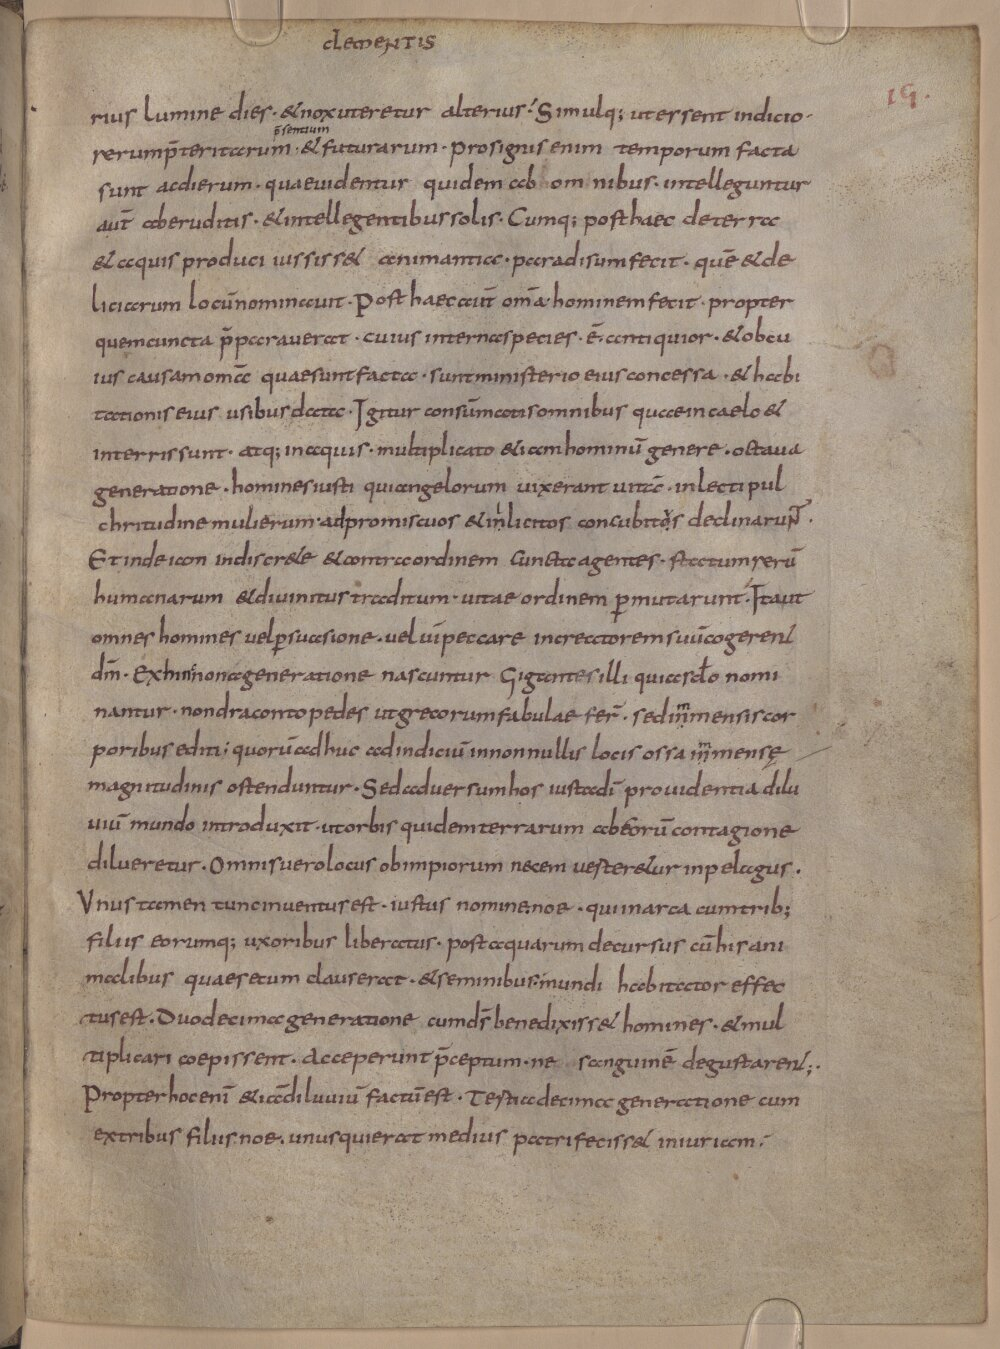 clementis
19.
rius lumine dies · & nox uteretur alterius · Simulq; ut essent indicio ·
p̄sentium
rerum p̄teritarum · & futurarum · pro signis enim temporum facta
sunt ac dierum · quae uidentur quidem ab omnibus · intelleguntur
aut̄ ab eruditis · & intellegentibus solis · Cumq; post haec de terra
& aquis produci iussiss& animantia · paradisum fecit · quē & de
liciarum locū nominauit · Post haec aut̄ om̄a hominem fecit · propter
quem cuncta p̄parauerat · cuius interna species · ē antiquior · & ob cu
ius causam om̄a quae sunt facta · sunt ministerio eius concessa · & habi
tationis eius usibus data · Igitur consūmatis omnibus quae in caelo &
in terris sunt · atq; in aquis · multiplicato & iam hominū genere · octaua
generatione · homines iusti qui angelorum uixerant uitā · inlecti pul
chritudine mulierum · ad promiscuos & inlicitos concubitos declinarunt ·
Et inde iam indiscr&e & contra ordinem cuncta agentes · statum rerū
humanarum & diuinitus traditum · uitae ordinem p̄mutarunt · Ita ut
omnes homines uel p̄suasione · uel ui peccare in creatorem suū cogerent
dm̄ · Exhinc nona generatione nascuntur Gigantes illi qui a sclo nomi
nantur · non dracontopedes ut grecorum fabulae fer̄ · sed inmensis cor
poribus editi; quorū adhuc ad indiciū in nonnullis locis ossa inmensę
magnitudinis ostenduntur · Sed aduersum hos iusta dī prouidentia dilu
uiū mundo introduxit · ut orbis quidem terrarum ab eorū contagione
dilueretur · Omnis uero locus ob impiorum necem uerter&ur in pelagus ·
Vnus tamen tunc inuentus est · iustus nomine noe · qui in arca cum trib;
filiis eorumq; uxoribus liberatus · post aquarum decursus cū his ani
malibus quae secum clauserat · & seminibus · mundi habitator effec
tus est · Duodecima generatione cum ds̄ benedixiss& homines · & mul
tiplicari coepissent · Acceperunt p̄ceptum · ne sanguinē degustarent; ·
Propter hoc enī & iā diluuiū factū est · Tertia decima generatione cum
ex tribus filiis noe · unus qui erat medius patri feciss& iniuriam ·